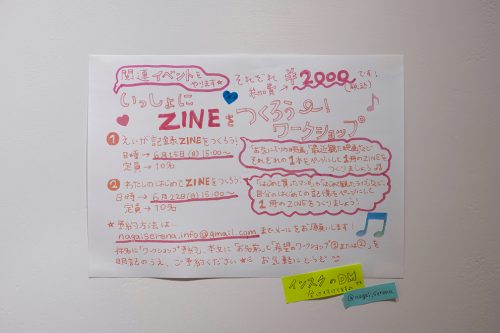 関連イベントを
やります★
それぞれ
参加費→ ¥2000です!
(税込)
いっしょに
ZINEをつくろう〜!
ワークショップ
① えいが記録ZINEをつくろう!
日時→ 6月15日(日) 15:00〜
定員→10名
「お気に入りの映画」「最近観た映画」など
それぞれの1本をベースにして1冊のZINEを
つくりましょう♫
② わたしのはじめてZINEをつくろう!
日時→ 6月22日(日) 15:00〜
定員→10名
「はじめて買ったマンガ」「はじめて観たライブ」など、
自分のはじめての記憶をベースにして
1冊のZINEをつくりましょう!
★予約方法は…
nagaiserena.info@gmail.com までメールをお願いします!
件名に「ワークショップ予約」、本文に「お名前」と「希望のワークショップ(①または②)」を
明記のうえ、ご予約ください★ お気軽にどうぞ
インスタのDM
@nagai_serena